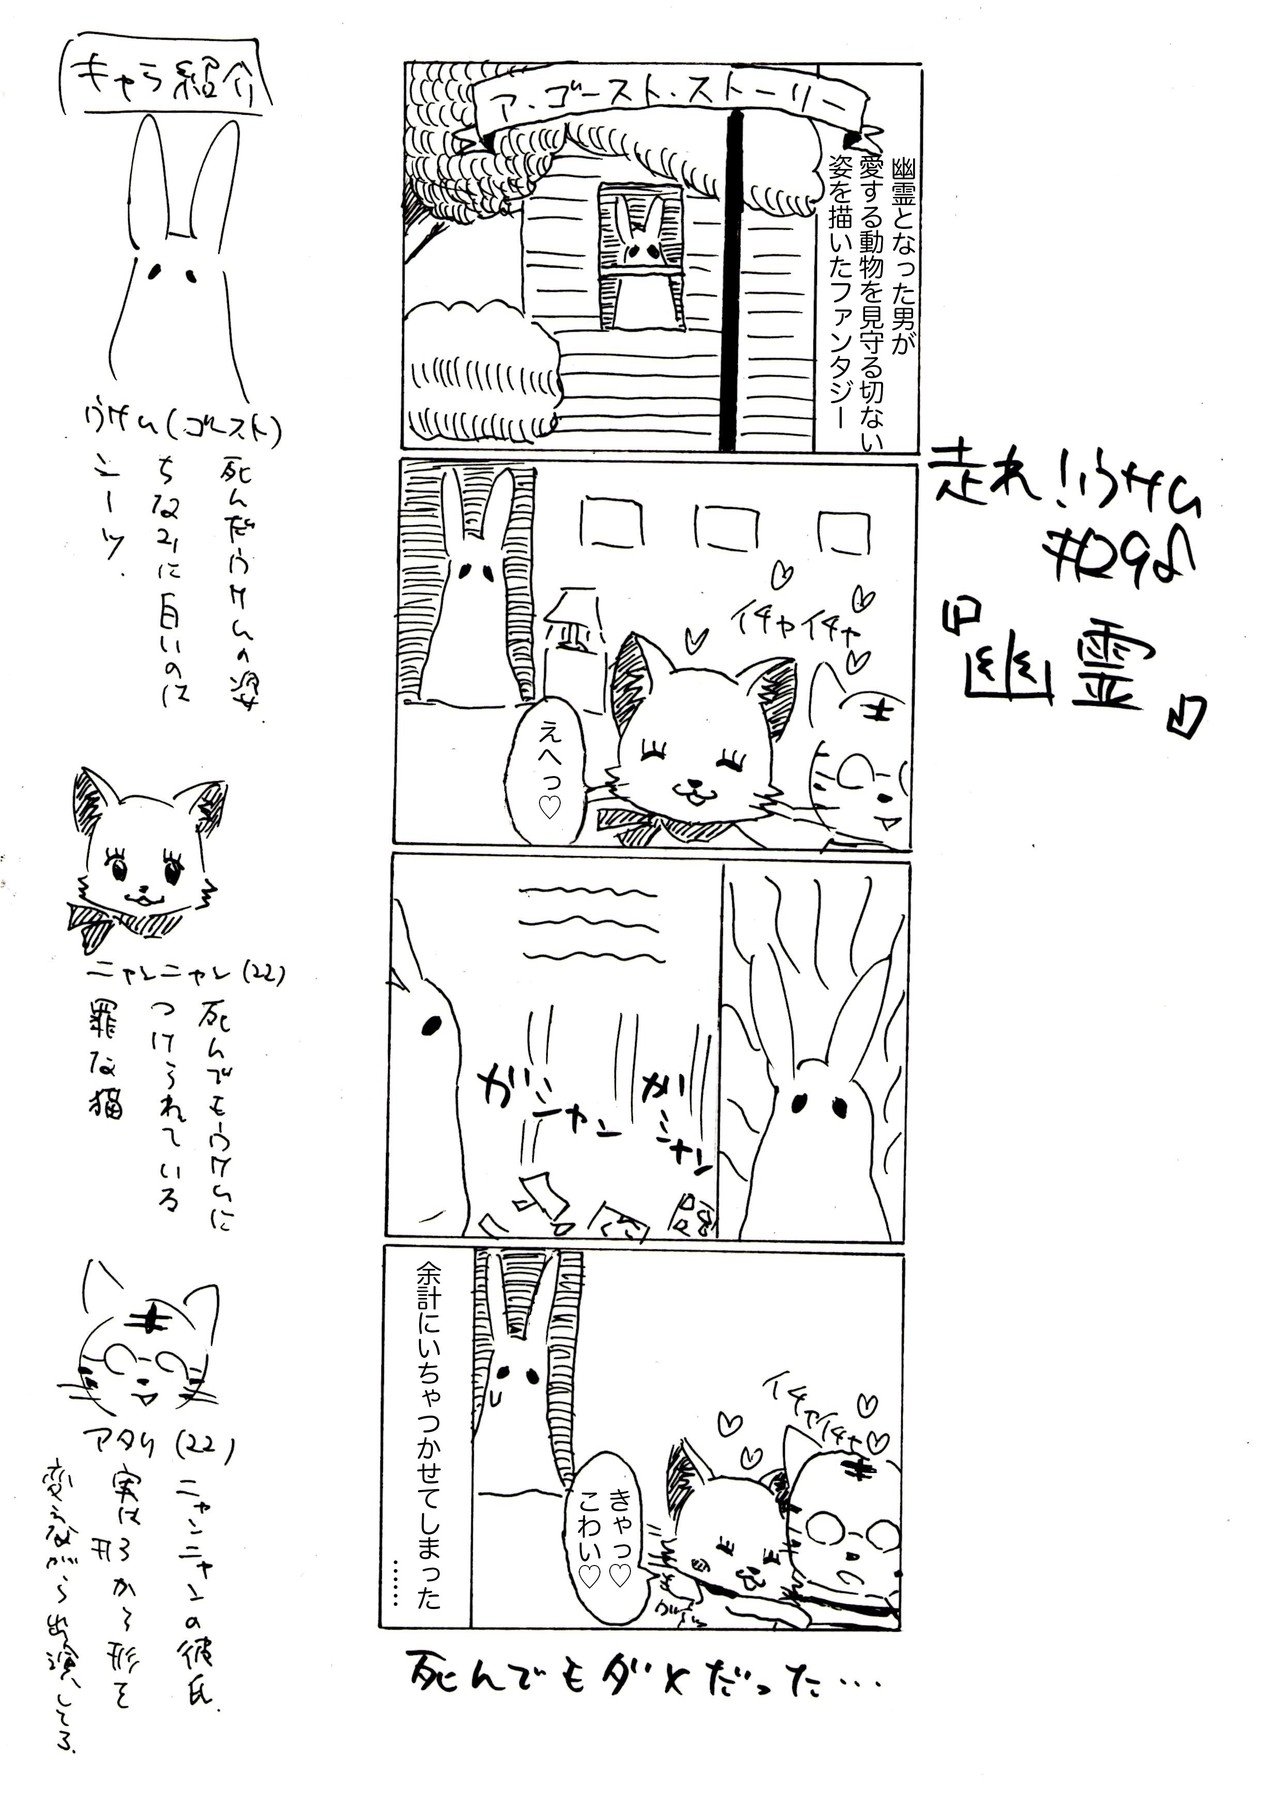 走れ！うサム
#298
『幽霊』
ア・ゴースト・ストーリー
幽霊となった男が
愛する動物を見守る切ない
姿を描いたファンタジー
イチャイチャ
えへっ♡
ガシャン
ガシャン
イチャイチャ
きゃっ♡
こわい♡
余計にいちゃつかせてしまった
……
死んでもダメだった…
キャラ紹介
うサム(ゴースト)
死んだうサムの姿.
ちなみに白いのは
シーツ.
ニャンニャン(22)
死んでもうサムに
つけられている
罪な猫
アタリ(22)
ニャンニャンの彼氏.
実は形から形を
変えながら出演してる.